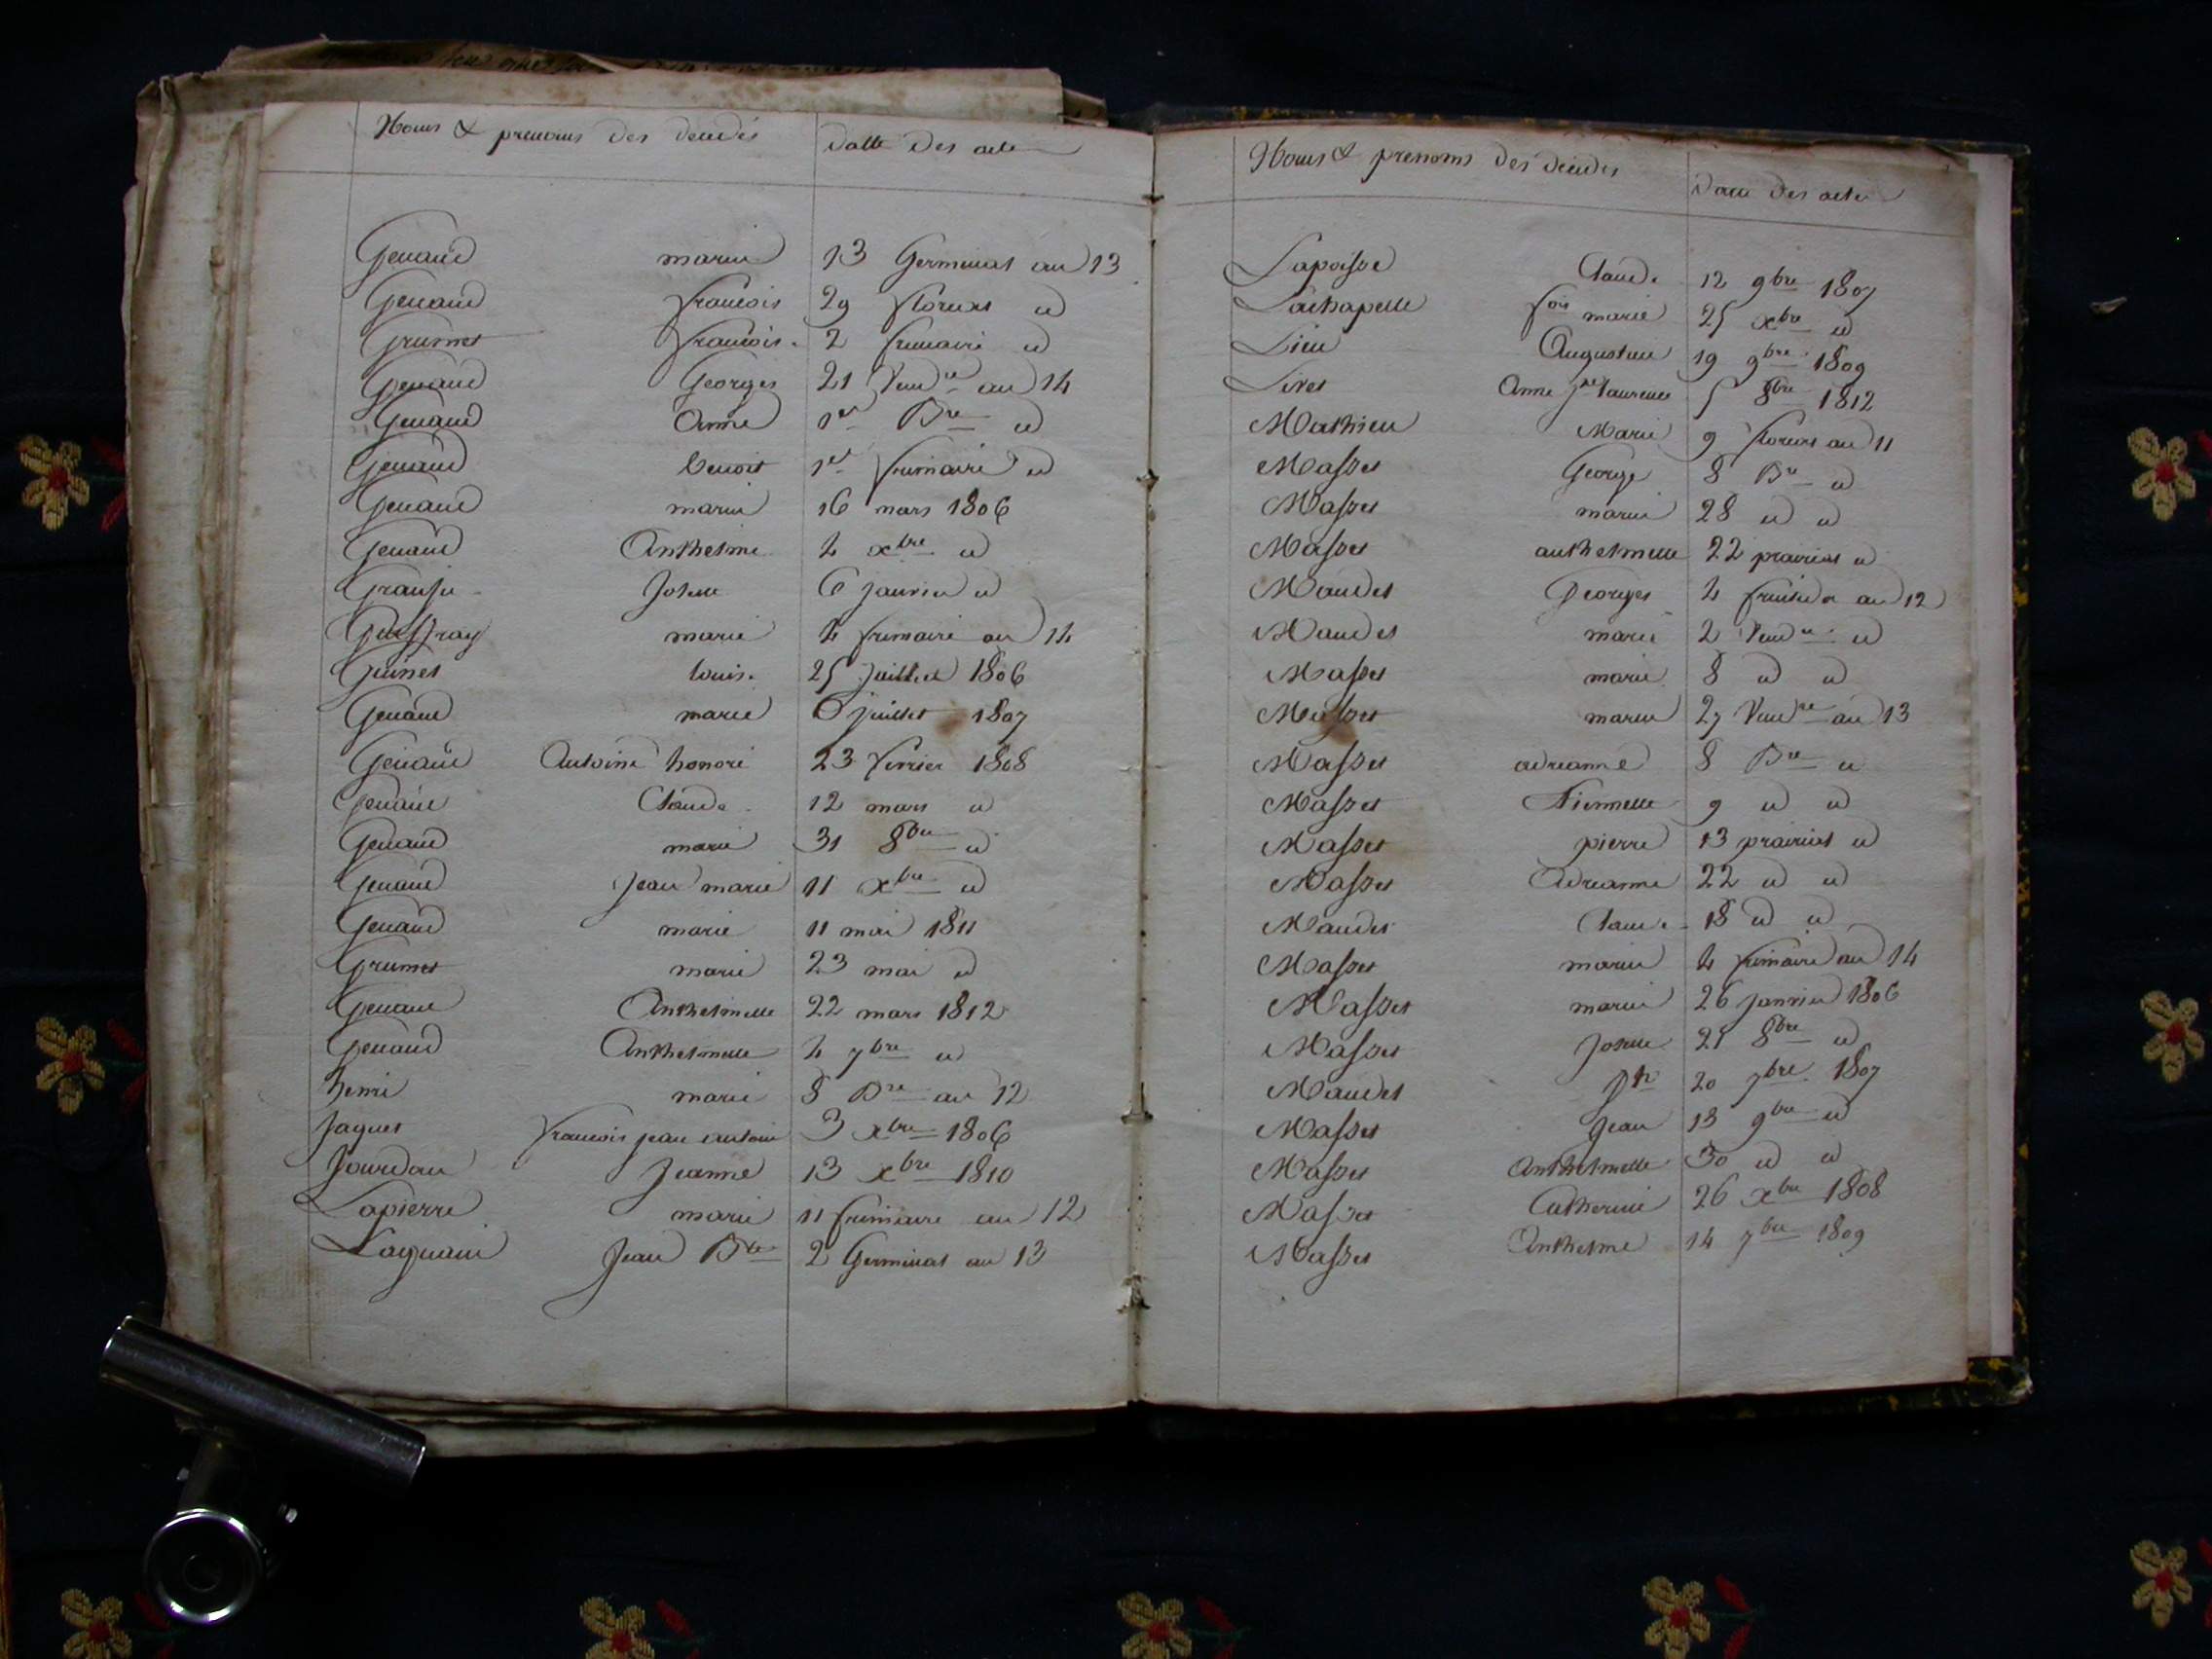 Noms & prenoms des decedés
datte des acte
Genaud marie 13 Germinal an 13
Genaud francois 29 floreal id
Grumet francois 2 frimaire id
Genaud Georges 21 Vendre an 14
Genaud Anne 1er Bre id
Genaud benoit 1er frimaire id
Genaud marie 16 mars 1806
Genaud Anthelme 4 xbre id
Josette 6 janvier id
marie 4 frimaire an 14
Guinet louis 25 juillet 1806
Genaud marie 6 juillet 1807
Genaud Antoine honoré 23 fevrier 1808
Genaud Claude 12 mars id
Genaud marie 31 8bre id
Genaud Jean marie 11 xbre id
Genaud marie 11 mai 1811
Grumet marie 23 mai id
Genaud Anthelmette 22 mars 1812
Genaud Anthelmette 4 7bre id
henri marie 8 Bre an 12
Jaquet francois jean antoine 3 xbre 1806
Jourdan Jeanne 13 xbre 1810
Lapierre marie 11 frimaire an 12
Jean Bte 2 Germinal an 13
Noms & prenoms des decedes
date des actes
Lapoisse Claude 12 9bre 1807
Lachapelle fois marie 25 xbre id
Augustin 19 9bre 1809
Livet Anne jne laurence 5 8bre 1812
Mathieu Marie 9 floreal an 11
Masset George 8 Bre id
Masset marie 28 id id
Masset anthelmette 22 prairial id
Maudet Georges 4 fructidor an 12
Maudet marie 2 Vendre id
Masset marie 8 id id
Masset marie 27 Vendre an 13
Masset adrianne 8 Bre id
Masset Fiennette 9 id id
Masset pierre 13 prairial id
Masset Adrianne 22 id id
Maudet Claude 18 id id
Masset marie 4 frimaire an 14
Masset marie 26 janvier 1806
Masset Josette 25 8bre id
Maudet 20 7bre 1807
Masset Jean 13 9bre id
Masset Anthelmette 30 id id
Masset Catherine 26 xbre 1808
Masset Anthelme 14 7bre 1809